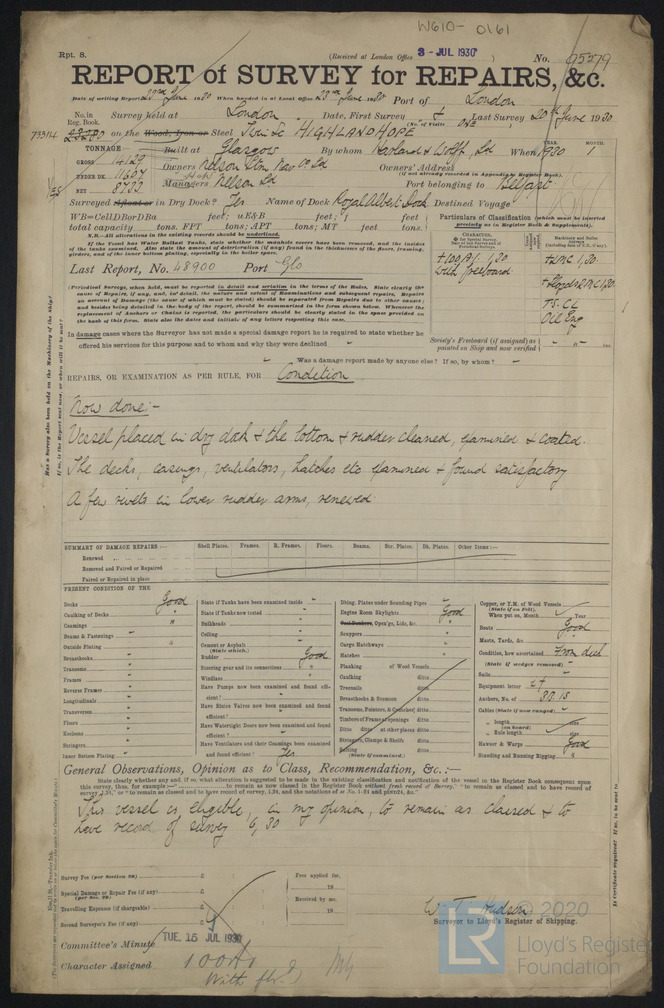 W610-0161
Rpt. 8.
(Received at London Office 3-JUL 1930)
No. 95279
REPORT of SURVEY for REPAIRS, &c.
Date of writing Report 23rd June 1930 When handed in at Local Office 23rd June 1930 Port of London
No. in Reg. Book.
Survey held at London Date, First Survey & Last Survey 20th June 1930
(No. of Visits ONE)
73314
on the Wood, Iron or Steel HIGHLAND HOPE
TONNAGE
GROSS 14129
UNDER DK. 11607
NET 8733
Built at Glasgow By whom Harland & Wolff, Ld When 1930
YEAR. MONTH.
1
Owners Nelson Stm Nav Co Ld Owners' Address
(if not already recorded in Appendix to Register Book.)
Managers Nelson Ld Port belonging to Belfast
Surveyed afloat or in Dry Dock? Yes Name of Dock Royal Albert Dock Destined Voyage
WB=CellDBorDBa feet; uE&B feet; f feet
total capacity tons. FPT tons; APT tons; MT feet tons.
N.B.—All alterations in the existing records should be underlined.
If the Vessel has Water Ballast Tanks, state whether the manhole covers have been removed, and the insides
of the tanks examined. Also state the amount of deterioration (if any) found in the thicknesses of the floors, framing,
girders, and of the inner bottom plating, especially in the boiler space.
Particulars of Classification (which must be inserted precisely as in Register Book & Supplements).
Last Report, No. 48900 Port Glo
+100A1. 1,30
with freeboard
+LMC 1,30
+Lloyd's RMC 1,30
TS. CL
Oil Eng
(Periodical Surveys, when held, must be reported in detail and seriatim in the terms of the Rules. State clearly the
cause of Repairs, if any, and, in detail, the nature and extent of Examinations and subsequent repairs. Repairs
on account of Damage (the cause of which must be stated) should be separated from Repairs due to other causes;
and besides being detailed in the body of the report, should be summarised in the form shown below. Whenever the
replacement of Anchors or Chains is reported, the particulars should be clearly stated in the space provided on
the back of this form. State also the dates and initials of any letters respecting this case.
In damage cases where the Surveyor has not made a special damage report he is required to state whether he
offered his services for this purpose and to whom and why they were declined
Society's Freeboard (if assigned) as
painted on Ship and now verified
Was a damage report made by anyone else? If so, by whom?
REPAIRS, OR EXAMINATION AS PER RULE, FOR Condition
Now done:-
Vessel placed in dry dock & the bottom & rudder cleaned, examined & coated.
The decks, casings, ventilators, hatches etc examined & found satisfactory
A few rivets in lower rudder arms, renewed
SUMMARY OF DAMAGE REPAIRS :— Shell Plates. Frames. R. Frames. Floors. Beams. Str. Plates. Dk. Plates. Other Items:—
Renewed
Removed and Faired or Repaired
Faired or Repaired in place
PRESENT CONDITION OF THE
Decks Good
Caulking of Decks "
Coamings "
Beams & Fastenings "
Outside Plating "
Breasthooks "
Transoms "
Frames "
Reverse Frames "
Longitudinals "
Transverses "
Floors "
Keelsons "
Stringers "
Inner Bottom Plating "
State if Tanks have been examined inside
State if Tanks now tested
Bulkheads
Ceiling
Cement or Asphalt
(State which.)
Rudder Good
Steering gear and its connections "
Windlass "
Have Pumps now been examined and found efficient?
Have Sluice Valves now been examined and found efficient?
Have Watertight Doors now been examined and found efficient?
Have Ventilators and their Coamings been examined and found efficient? Yes
Dbling. Plates under Sounding Pipes
Engine Room Skylights Good
Coal Bunkers, Open'gs, Lids, &c.
Scuppers
Cargo Hatchways
Hatches
Planking of Wood Vessels
Caulking ditto
Treenails ditto
Breasthooks & Stemson ditto
Transoms, Pointers, & Crutches ditto
Timbers of Frame at openings ditto
Ditto ditto at other places ditto
Stringers, Clamps & Shelfs ditto
Salting ditto
(State if examined.)
Copper, or Y.M. of Wood Vessels
(State if on Felt).
When put on, Month Year
Boats Good
Masts, Yards, &c.
Condition, how ascertained From deck
(State if wedges removed)
Sails
Equipment letter
Anchors, No. of 3B.1S
Cables (State if now ranged)
" length size
(on board)
" Rule length size
Hawser & Warps Good
Standing and Running Rigging "
General Observations, Opinion as to Class, Recommendation, &c. :—
State clearly whether any, if so, what alteration is suggested to be made in the existing classification and notification of the vessel in the Register Book consequent upon
this survey, thus, for example:—" to remain as now classed in the Register Book without fresh record of Survey," "to remain as now classed and to have record of
This vessel is eligible, in my opinion, to remain as classed & to
have record of survey 6,30
Survey Fee (per Section 29) £
Special Damage or Repair Fee (if any) £
(per Sec. 29)
Travelling Expenses (if chargeable) £
Second Surveyor's Fee (if any) £
Fees applied for,
19
Received by me,
19
W. T. Hudson
Surveyor to Lloyd's Register of Shipping.
Committee's Minute TUE. 15 JUL 1930
Character Assigned 100A1
With fbd
© 2020
LR
Lloyd's Register
Foundation